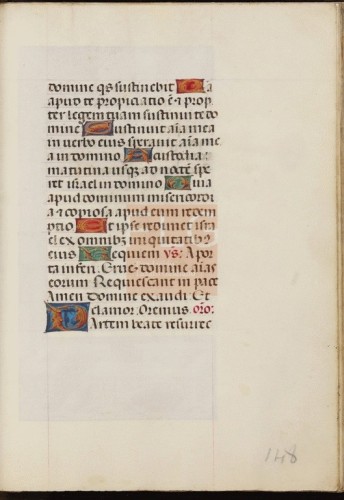 domine qs sustinebit Q a
apud te propiciatio e & prop
ter legem tuam sustinui te do
mine Sustinuit aia mea
in verbo eius speravit aia me
a in domino A custodia
matutina usqz ad nocte spe
ret israel in domino Q uia
apud dominum misericordi
a & copiosa apud eum redem
ptio E t ipse redimet isra
el ex omnibz iniquitatibz
eius R equiem vs: A por
ta inferi. Erue domine aias
eorum Requiescant in pace
Amen Domine exaudi. Et
clamor. Oremus. oro:
artem beate resurrec
148